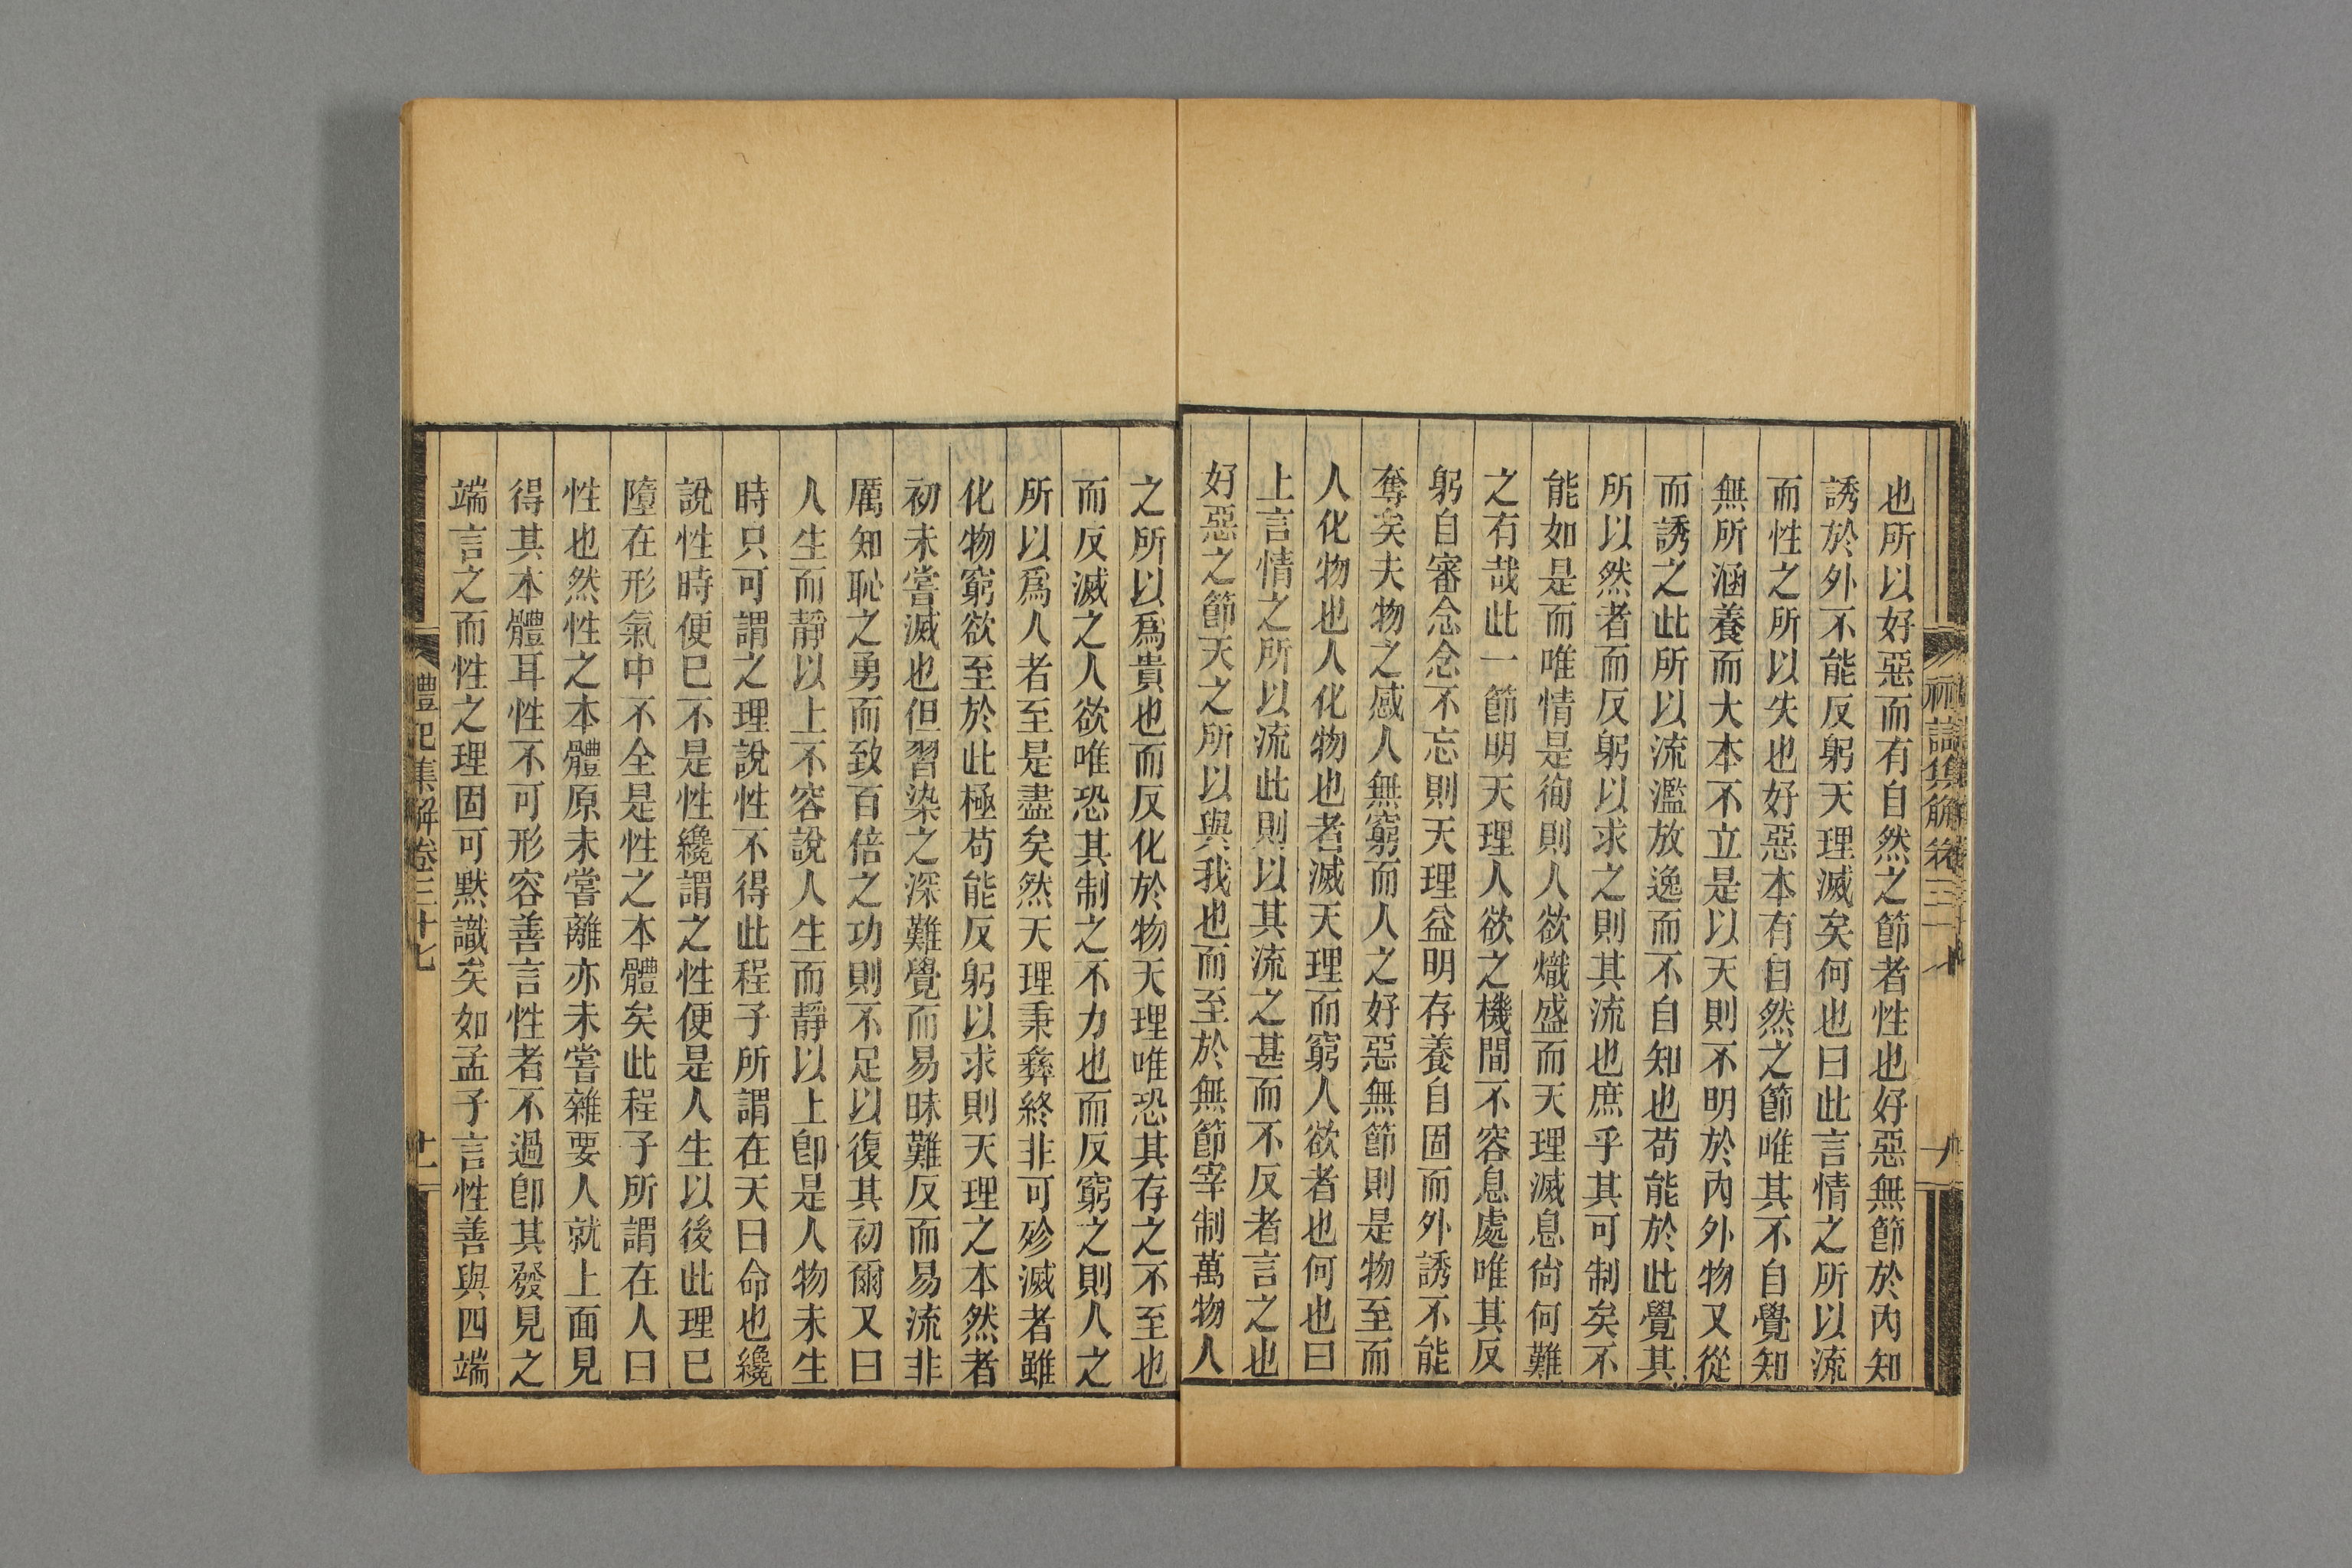 也所以好惡而有自然之節者性也好惡無節於內知
誘於外不能反躬天理滅矣何也曰此言情之所以流
而性之所以失也好惡本有自然之節唯其不自覺知
無所涵養而大本不立是以天則不明於內外物又從
而誘之此所以流濫放逸而不自知也苟能於此覺其
所以然者而反躬以求之則其流也庶乎其可制矣不
能如是而唯情是徇則人欲熾盛而天理滅息尙何難
之有哉此一節明天理人欲之機間不容息處唯其反
躬自審念念不忘則天理益明存養自固而外誘不能
奪矣夫物之感人無窮而人之好惡無節則是物至而
人化物也人化物也者滅天理而窮人欲者也何也曰
上言情之所以流此則以其流之甚而不反者言之也
好惡之節天之所以與我也而至於無節宰制萬物人
之所以爲貴也而反化於物天理唯恐其存之不至也
而反滅之人欲唯恐其制之不力也而反窮之則人之
所以爲人者至是盡矣然天理秉彝終非可殄滅者雖
化物窮欲至於此極苟能反躬以求則天理之本然者
初未嘗滅也但習染之深難覺而易昧難反而易流非
厲知恥之勇而致百倍之功則不足以復其初爾又曰
人生而靜以上不容說人生而靜以上卽是人物未生
時只可謂之理說性不得此程子所謂在天曰命也纔
說性時便已不是性纔謂之性便是人生以後此理已
墮在形氣中不全是性之本體矣此程子所謂在人曰
性也然性之本體原未嘗離亦未嘗雜要人就上面見
得其本體耳性不可形容善言性者不過卽其發見之
端言之而性之理固可默識矣如孟子言性善與四端
禮記集解卷三十七
十一